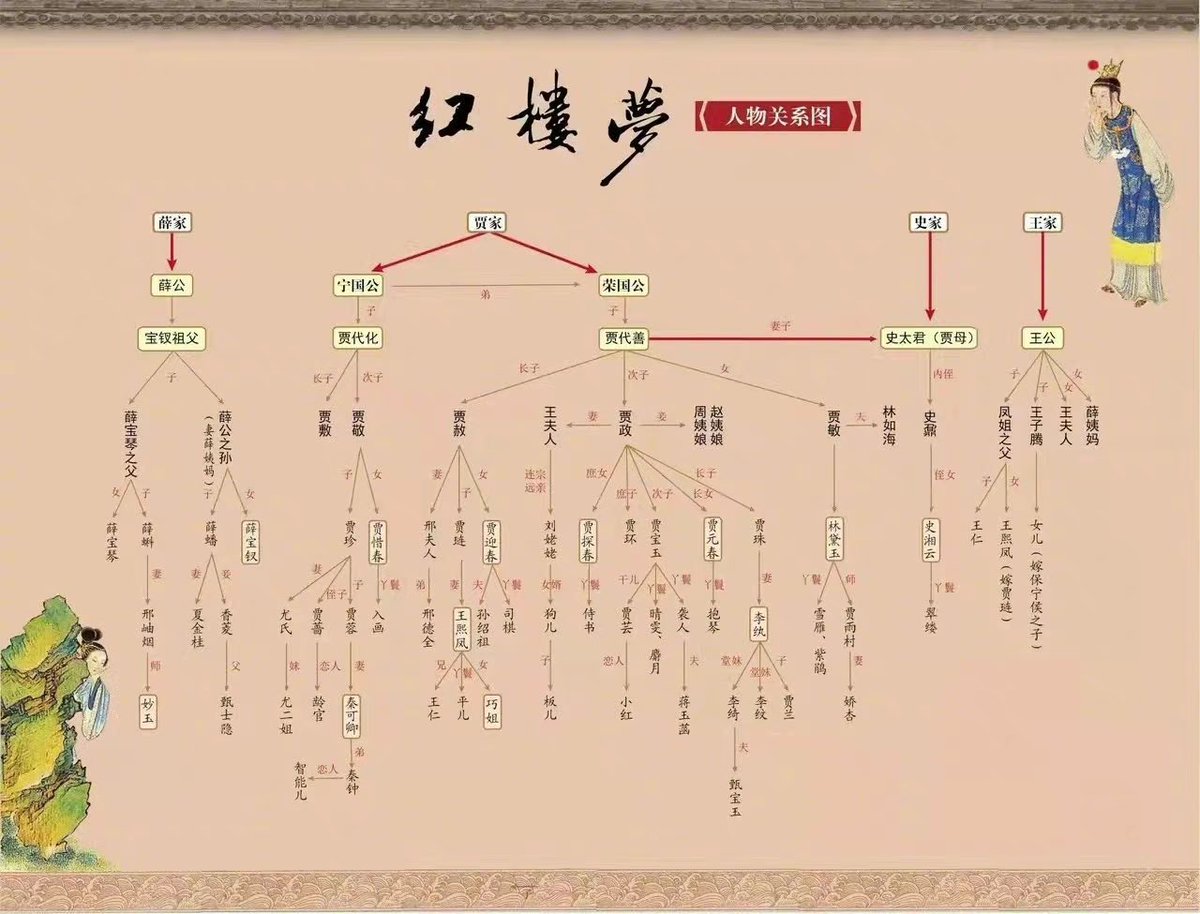 红楼夢
人物关系图
薛家
贾家
史家
王家
薛公
宁国公
弟
荣国公
子
子
宝钗祖父
贾代化
贾代善
妻子
史太君（贾母）
王公
子
长子
次子
长子
次子
女
内侄
子
子
女
女
薛宝琴之父
薛公之孙
（妻薛姨妈）
贾敷
贾敬
贾赦
王夫人
妻
贾政
妾
周姨娘
赵姨娘
贾敏
夫
林如海
史鼐
凤姐之父
王子腾
王夫人
薛姨妈
女
子
子
女
子
女
妻
子
女
连宗
远亲
庶女
庶子
次子
长女
长子
侄女
子
女
薛宝琴
薛蝌
薛蟠
薛宝钗
贾珍
贾惜春
邢夫人
贾琏
贾迎春
刘姥姥
贾探春
贾环
贾宝玉
贾元春
贾珠
林黛玉
史湘云
王仁
王熙凤（嫁贾琏）
女儿（嫁保宁侯之子）
妻
妻
妾
妻
侄子
子
丫鬟
弟
妻
夫
丫鬟
女婿
丫鬟
干儿
丫鬟
丫鬟
丫鬟
妻
丫鬟
师
丫鬟
邢岫烟
夏金桂
香菱
尤氏
贾蔷
贾蓉
入画
邢德全
王熙凤
孙绍祖
司棋
狗儿
侍书
贾芸
晴雯、麝月
袭人
抱琴
李纨
雪雁、紫鹃
贾雨村
翠缕
师
父
妹
恋人
妻
兄
丫鬟
女
子
恋人
夫
堂妹
堂妹
子
妻
妙玉
甄士隐
尤二姐
龄官
秦可卿
王仁
平儿
巧姐
板儿
小红
蒋玉菡
李绮
李纹
贾兰
娇杏
弟
夫
智能儿
恋人
秦钟
甄宝玉